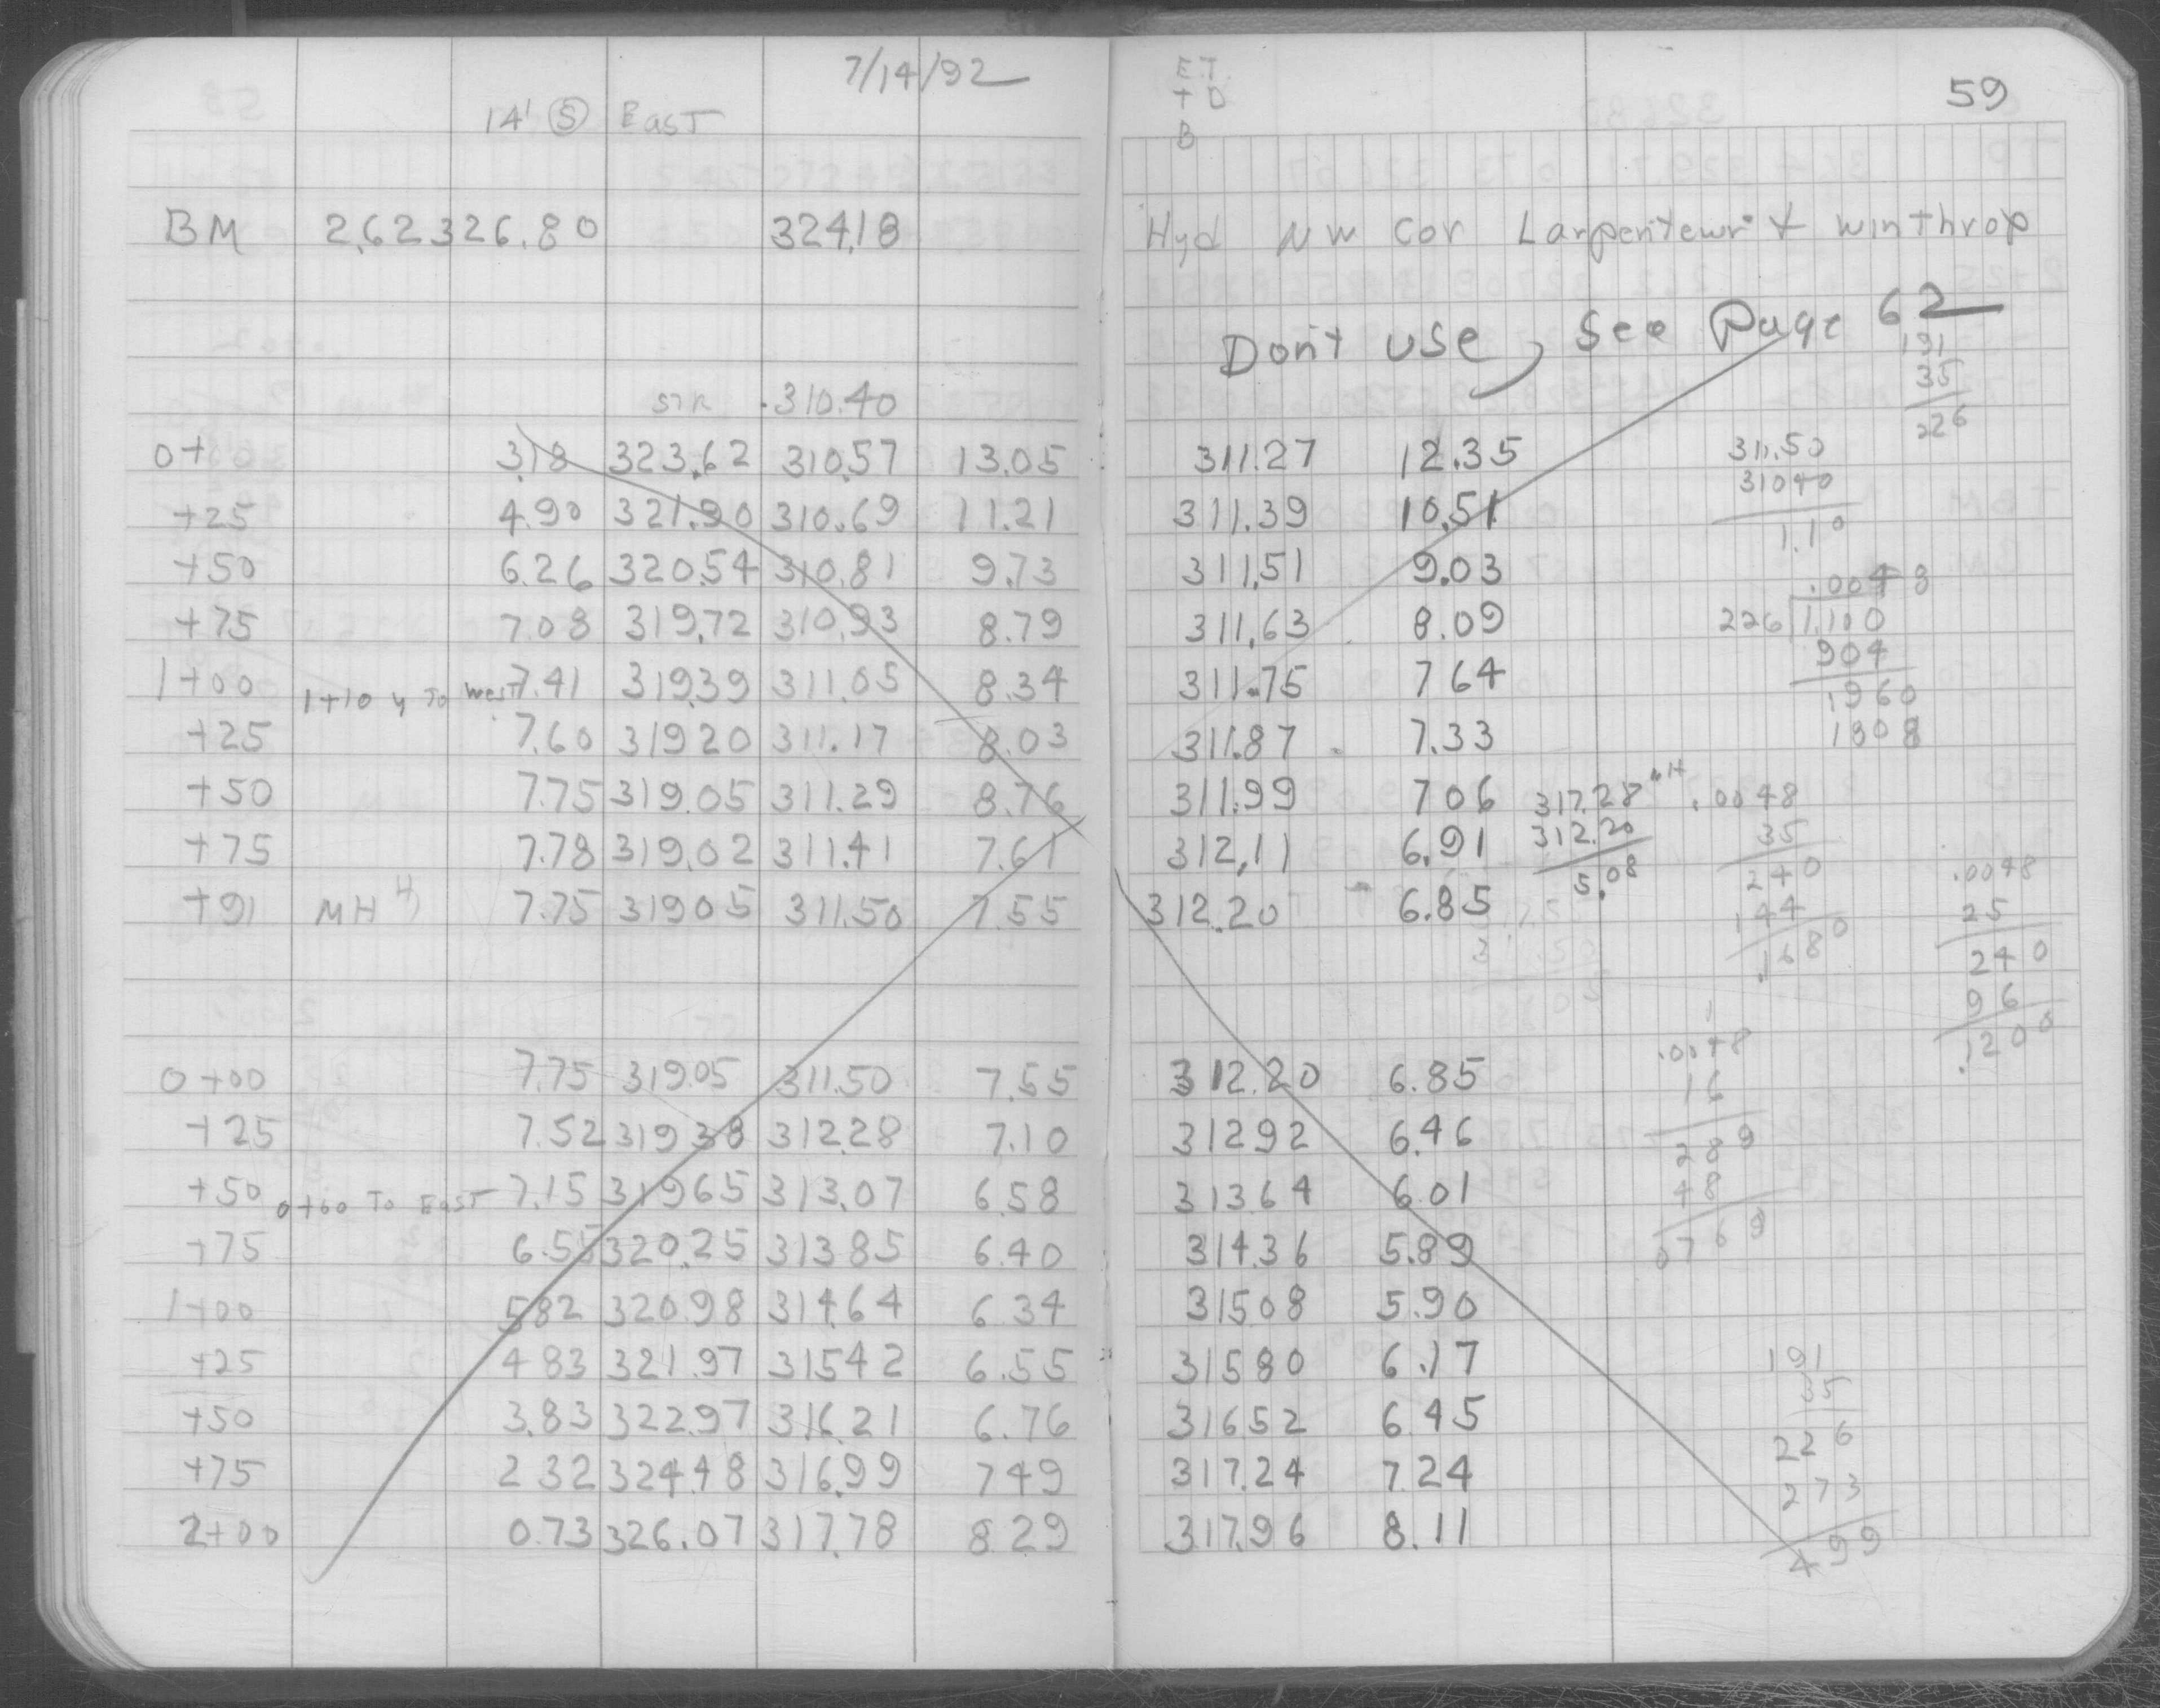 7/14/92
14' S East
BM 2.62 326.80 324.18
STR 310.40
0+ 3.18 323.62 310.57 13.05
+25 4.90 321.90 310.69 11.21
+50 6.26 320.54 310.81 9.73
+75 7.08 319.72 310.93 8.79
1+00 1+10 Y To West 7.41 319.39 311.05 8.34
+25 7.60 319.20 311.17 8.03
+50 7.75 319.05 311.29 8.76
+75 7.78 319.02 311.41 7.61
+91 MH 7.75 319.05 311.50 7.55
0+00 7.75 319.05 311.50 7.55
+25 7.52 319 38 312.28 7.10
+50 0+60 To East 7.15 319 65 313.07 6.58
+75 6.55 320.25 313 85 6.40
1+00 5 82 320.98 314.64 6 34
+25 4 83 321.97 315 42 6.55
+50 3.83 322 97 316.21 6.76
+75 2 32 324.48 316.99 7 49
2+00 0.73 326.07 317.78 8 29
ET.
+ D
B
59
Hyd NW Cor Larpenteur & Winthrop
Don't use, See Page 62
191
35
226
311.27 12.35
311.39 10.51
311.51 9.03
311.63 8.09
311.75 7 64
311.87 7.33
311.99 7 06
312.11 6.91
312.20 6.85
311.50
310 40
1.10
.0048
226 1.100
904
1960
1808
317.28 MH
312.20
5.08
.0048
35
240
144
.1680
.0048
25
240
96
.1200
312.20 6.85
312 92 6.46
313 64 6.01
314.36 5.89
315 08 5.90
315 80 6.17
316 52 6.45
317.24 7.24
317.96 8.11
.0048
16
288
48
0768
191
35
226
273
499